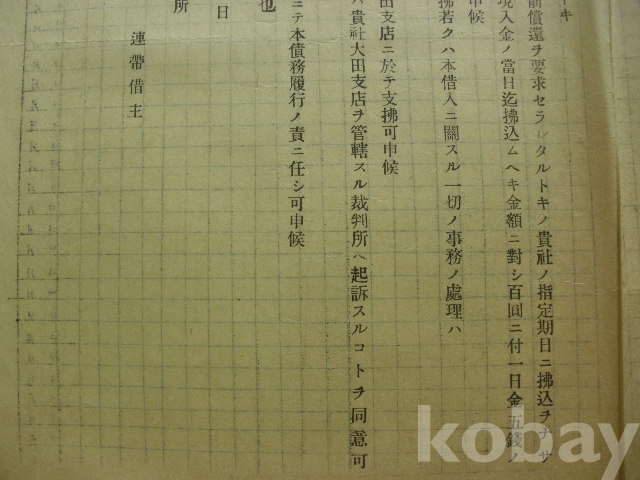 キ
前償還ヲ要求セラレタルトキノ貴社ノ指定期日ニ拂込ヲナサ
現入金ノ當日迄拂込ムヘキ金額ニ對シ百圓ニ付一日金五錢ノ
申候
拂若クハ本借入ニ關スル一切ノ事務ノ處理ハ
田支店ニ於テ支拂可申候
ハ貴社大田支店ヲ管轄スル裁判所ヘ起訴スルコトヲ同意可
ニテ本債務履行ノ責ニ任シ可申候
也
日
所
連帶借主
kobay